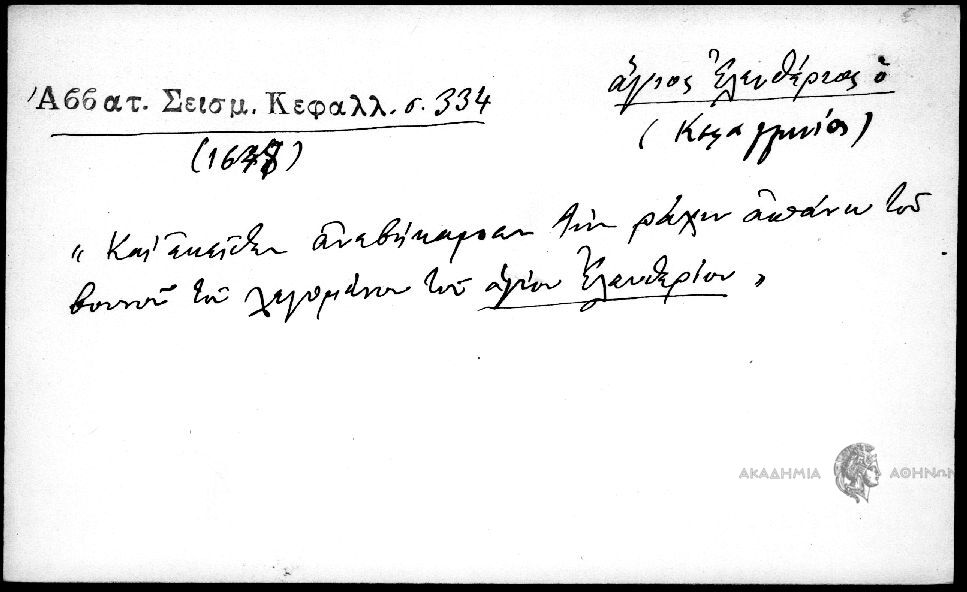 Ἀββατ. Σεισμ. Κεφαλλ. σ. 334
ἅγιος Ἐλευθέριος ὁ
"Καὶ ἐκεῖθεν ἀνεβήκαμεν τὴν ράχιν ἀπάνω τοῦ
βουνοῦ τοῦ λεγομένου τοῦ ἁγίου Ἐλευθερίου"
ΑΚΑΔΗΜΙΑ ΑΘΗΝΩΝ